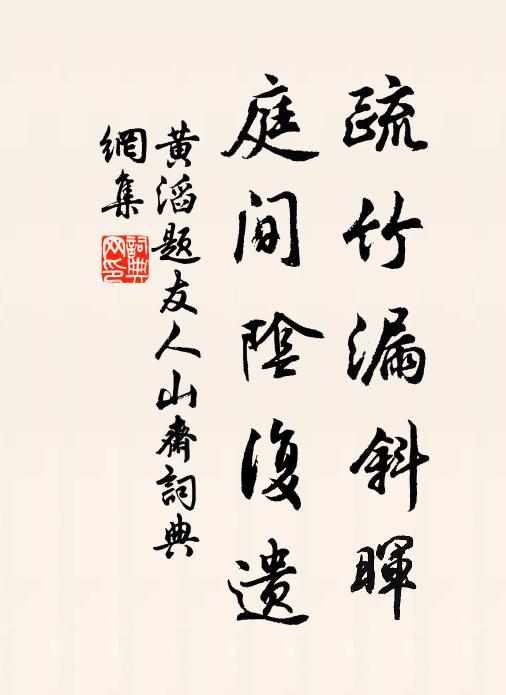 疏竹漏斜暉
庭間陰復遺
黃滔題友人山齋詞典
網集
詞典網印